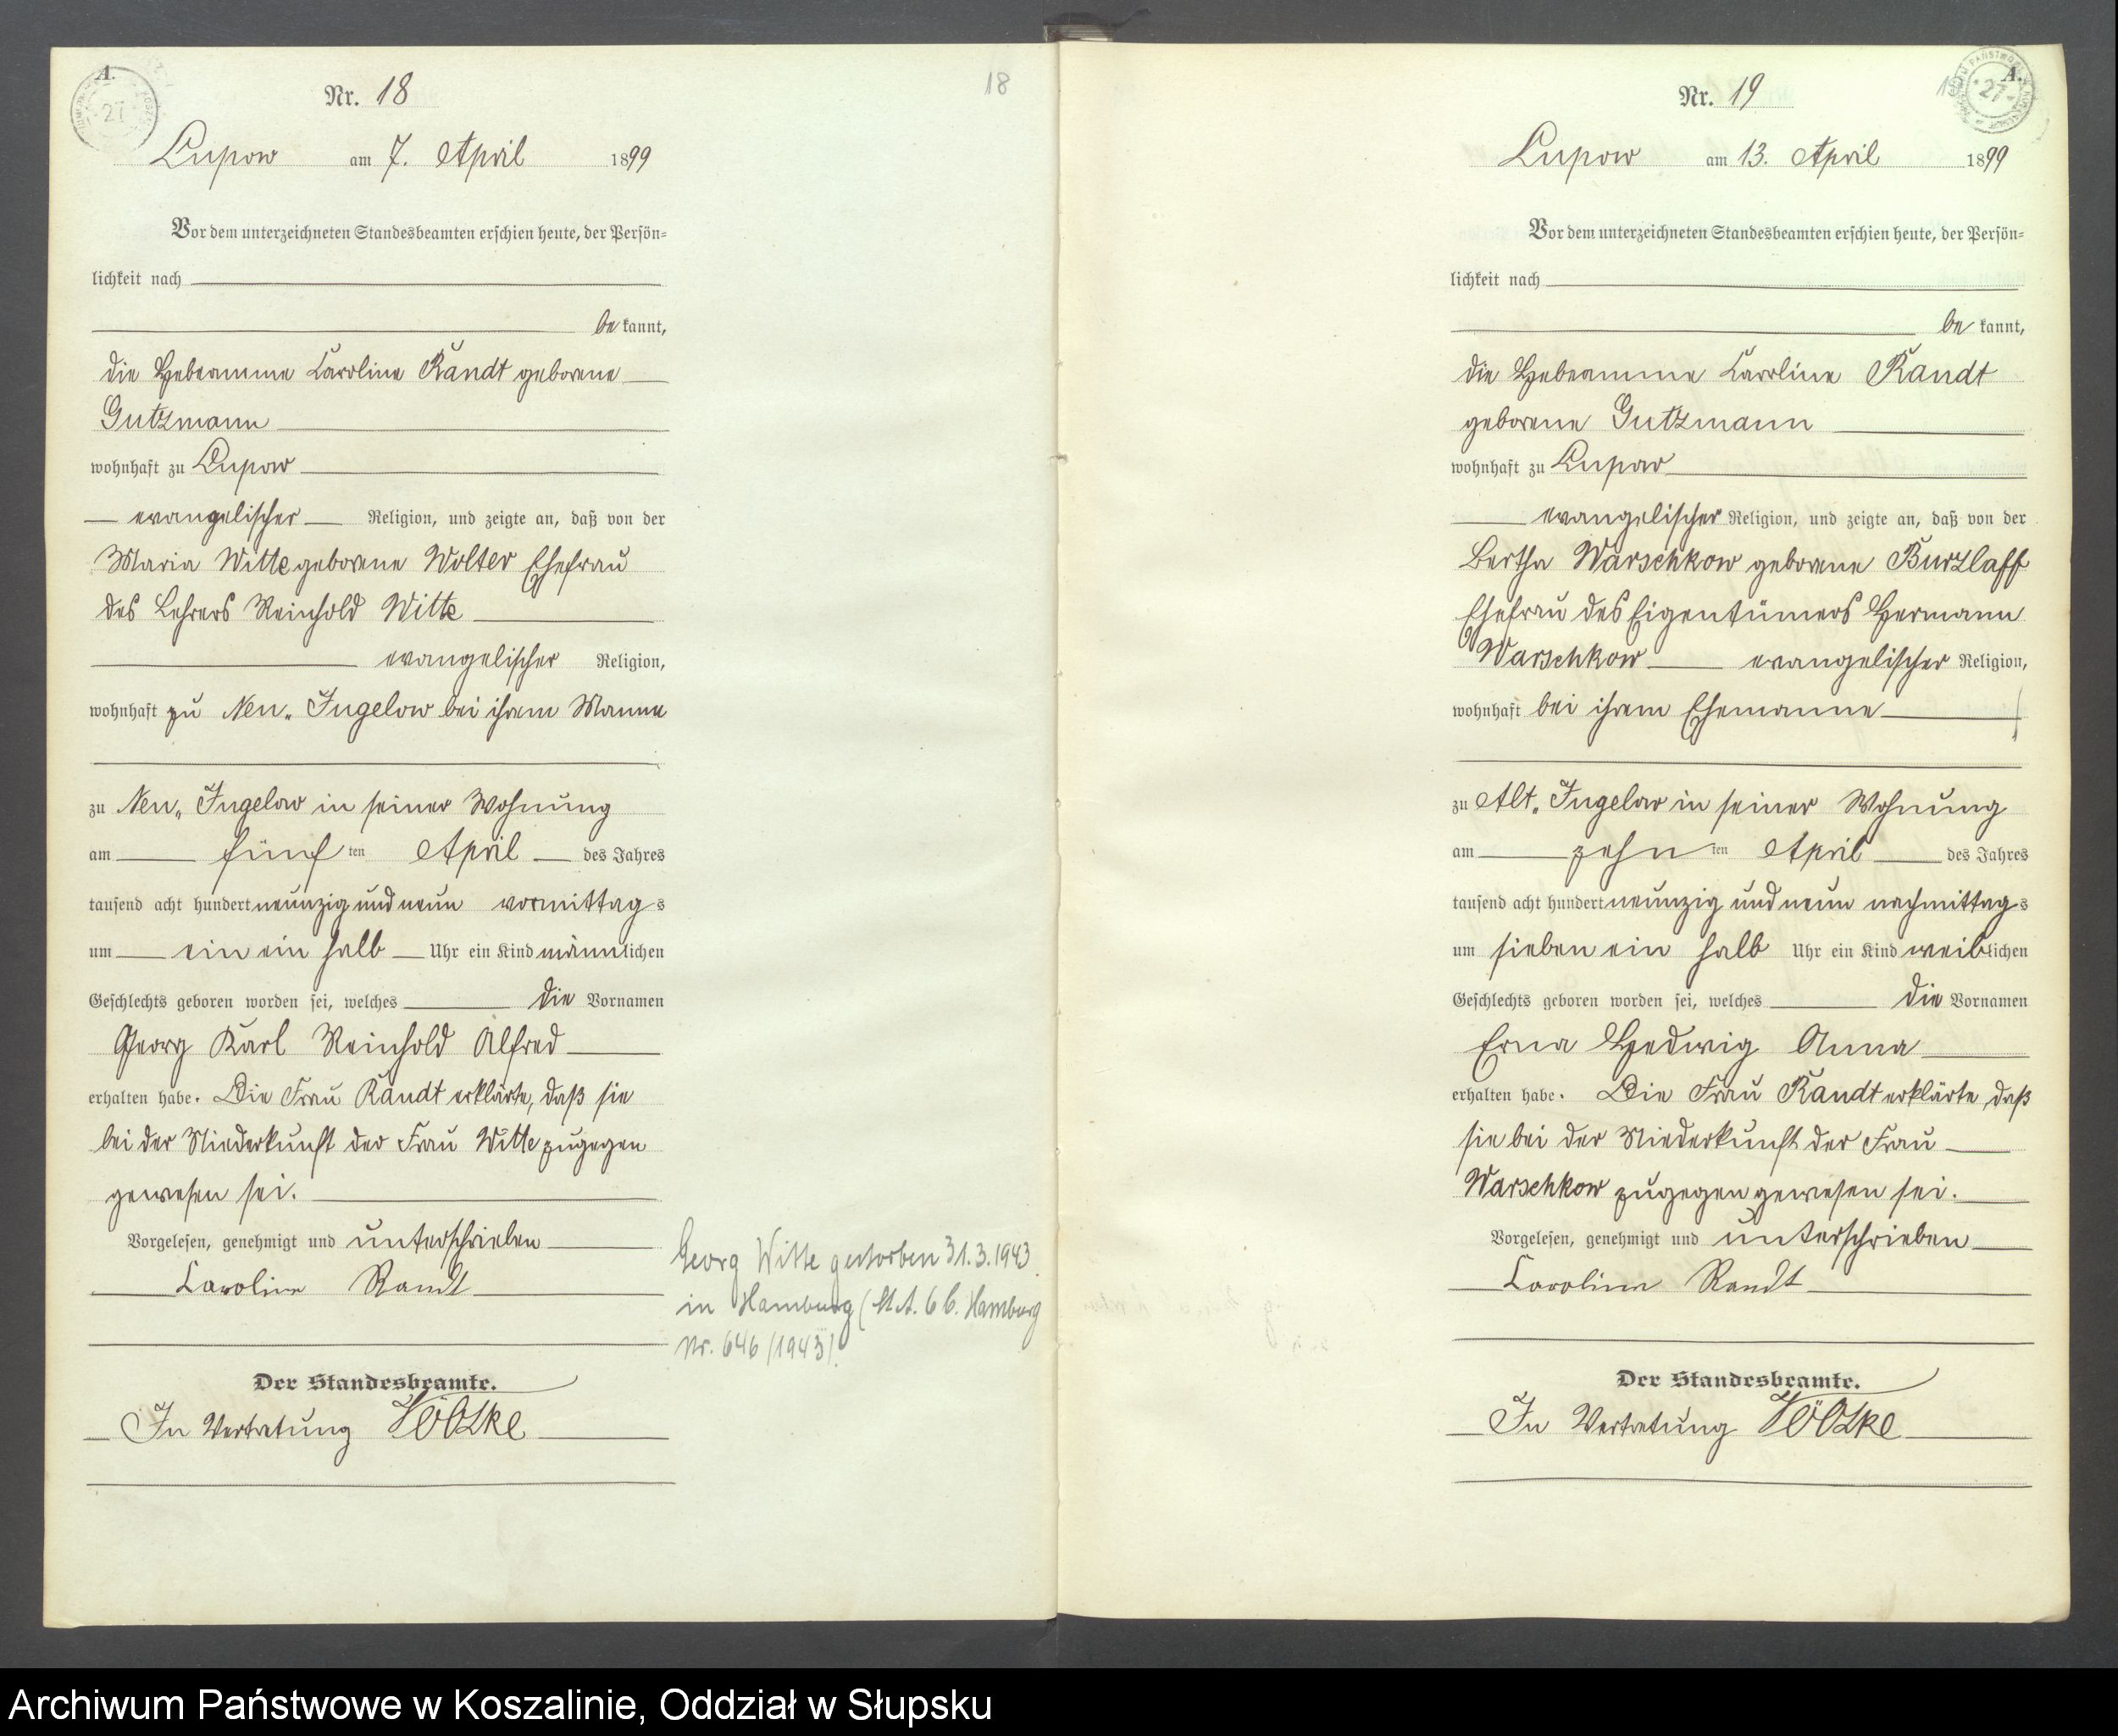 A.
27
Nr. 18
18
Lupow am 7. April 1899
Vor dem unterzeichneten Standesbeamten erschien heute, der Persön-
lichkeit nach
be kannt,
die Hebeamme Caroline Randt geborene
Gutzmann
wohnhaft zu Lupow
evangelischer Religion, und zeigte an, daß von der
Maria Witte geborene Wolter Ehefrau
des Lehrers Reinhold Witte
evangelischer Religion,
wohnhaft zu Neu„ Jugelow bei ihrem Manne
zu Neu„ Jugelow in seiner Wohnung
am fünf ten April des Jahres
tausend acht hundert neunzig und neun vormittag s
um ein ein halb Uhr ein Kind männlichen
Geschlechts geboren worden sei, welches die Vornamen
Georg Karl Reinhold Alfred
erhalten habe. Die Frau Randt erklärte, daß sie
bei der Niederkunft der Frau Witte zugegen
gewesen sei.
Vorgelesen, genehmigt und unterschrieben
Caroline Randt
Georg Witte gestorben 31.3.1943
in Hamburg (St.A. 6 b. Hamburg
Nr. 646/1943).
Der Standesbeamte.
In Vertretung
A.
27
Nr. 19
Lupow am 13. April 1899
Vor dem unterzeichneten Standesbeamten erschien heute, der Persön-
lichkeit nach
be kannt,
die Hebeamme Caroline Randt
geborene Gutzmann
wohnhaft zu Lupow
evangelischer Religion, und zeigte an, daß von der
Bertha Warschkow geborene Burzlaff
Ehefrau des Eigentümers Hermann
Warschkow evangelischer Religion,
wohnhaft bei ihrem Ehemanne
zu Alt„ Jugelow in seiner Wohnung
am zehn ten April des Jahres
tausend acht hundert neunzig und neun nachmittag s
um sieben ein halb Uhr ein Kind weiblichen
Geschlechts geboren worden sei, welches die Vornamen
Erna Hedwig Anna
erhalten habe. Die Frau Randt erklärte, daß
sie bei der Niederkunft der Frau
Warschkow zugegen gewesen sei.
Vorgelesen, genehmigt und unterschrieben
Caroline Randt
Der Standesbeamte.
In Vertretung
Archiwum Państwowe w Koszalinie, Oddział w Słupsku